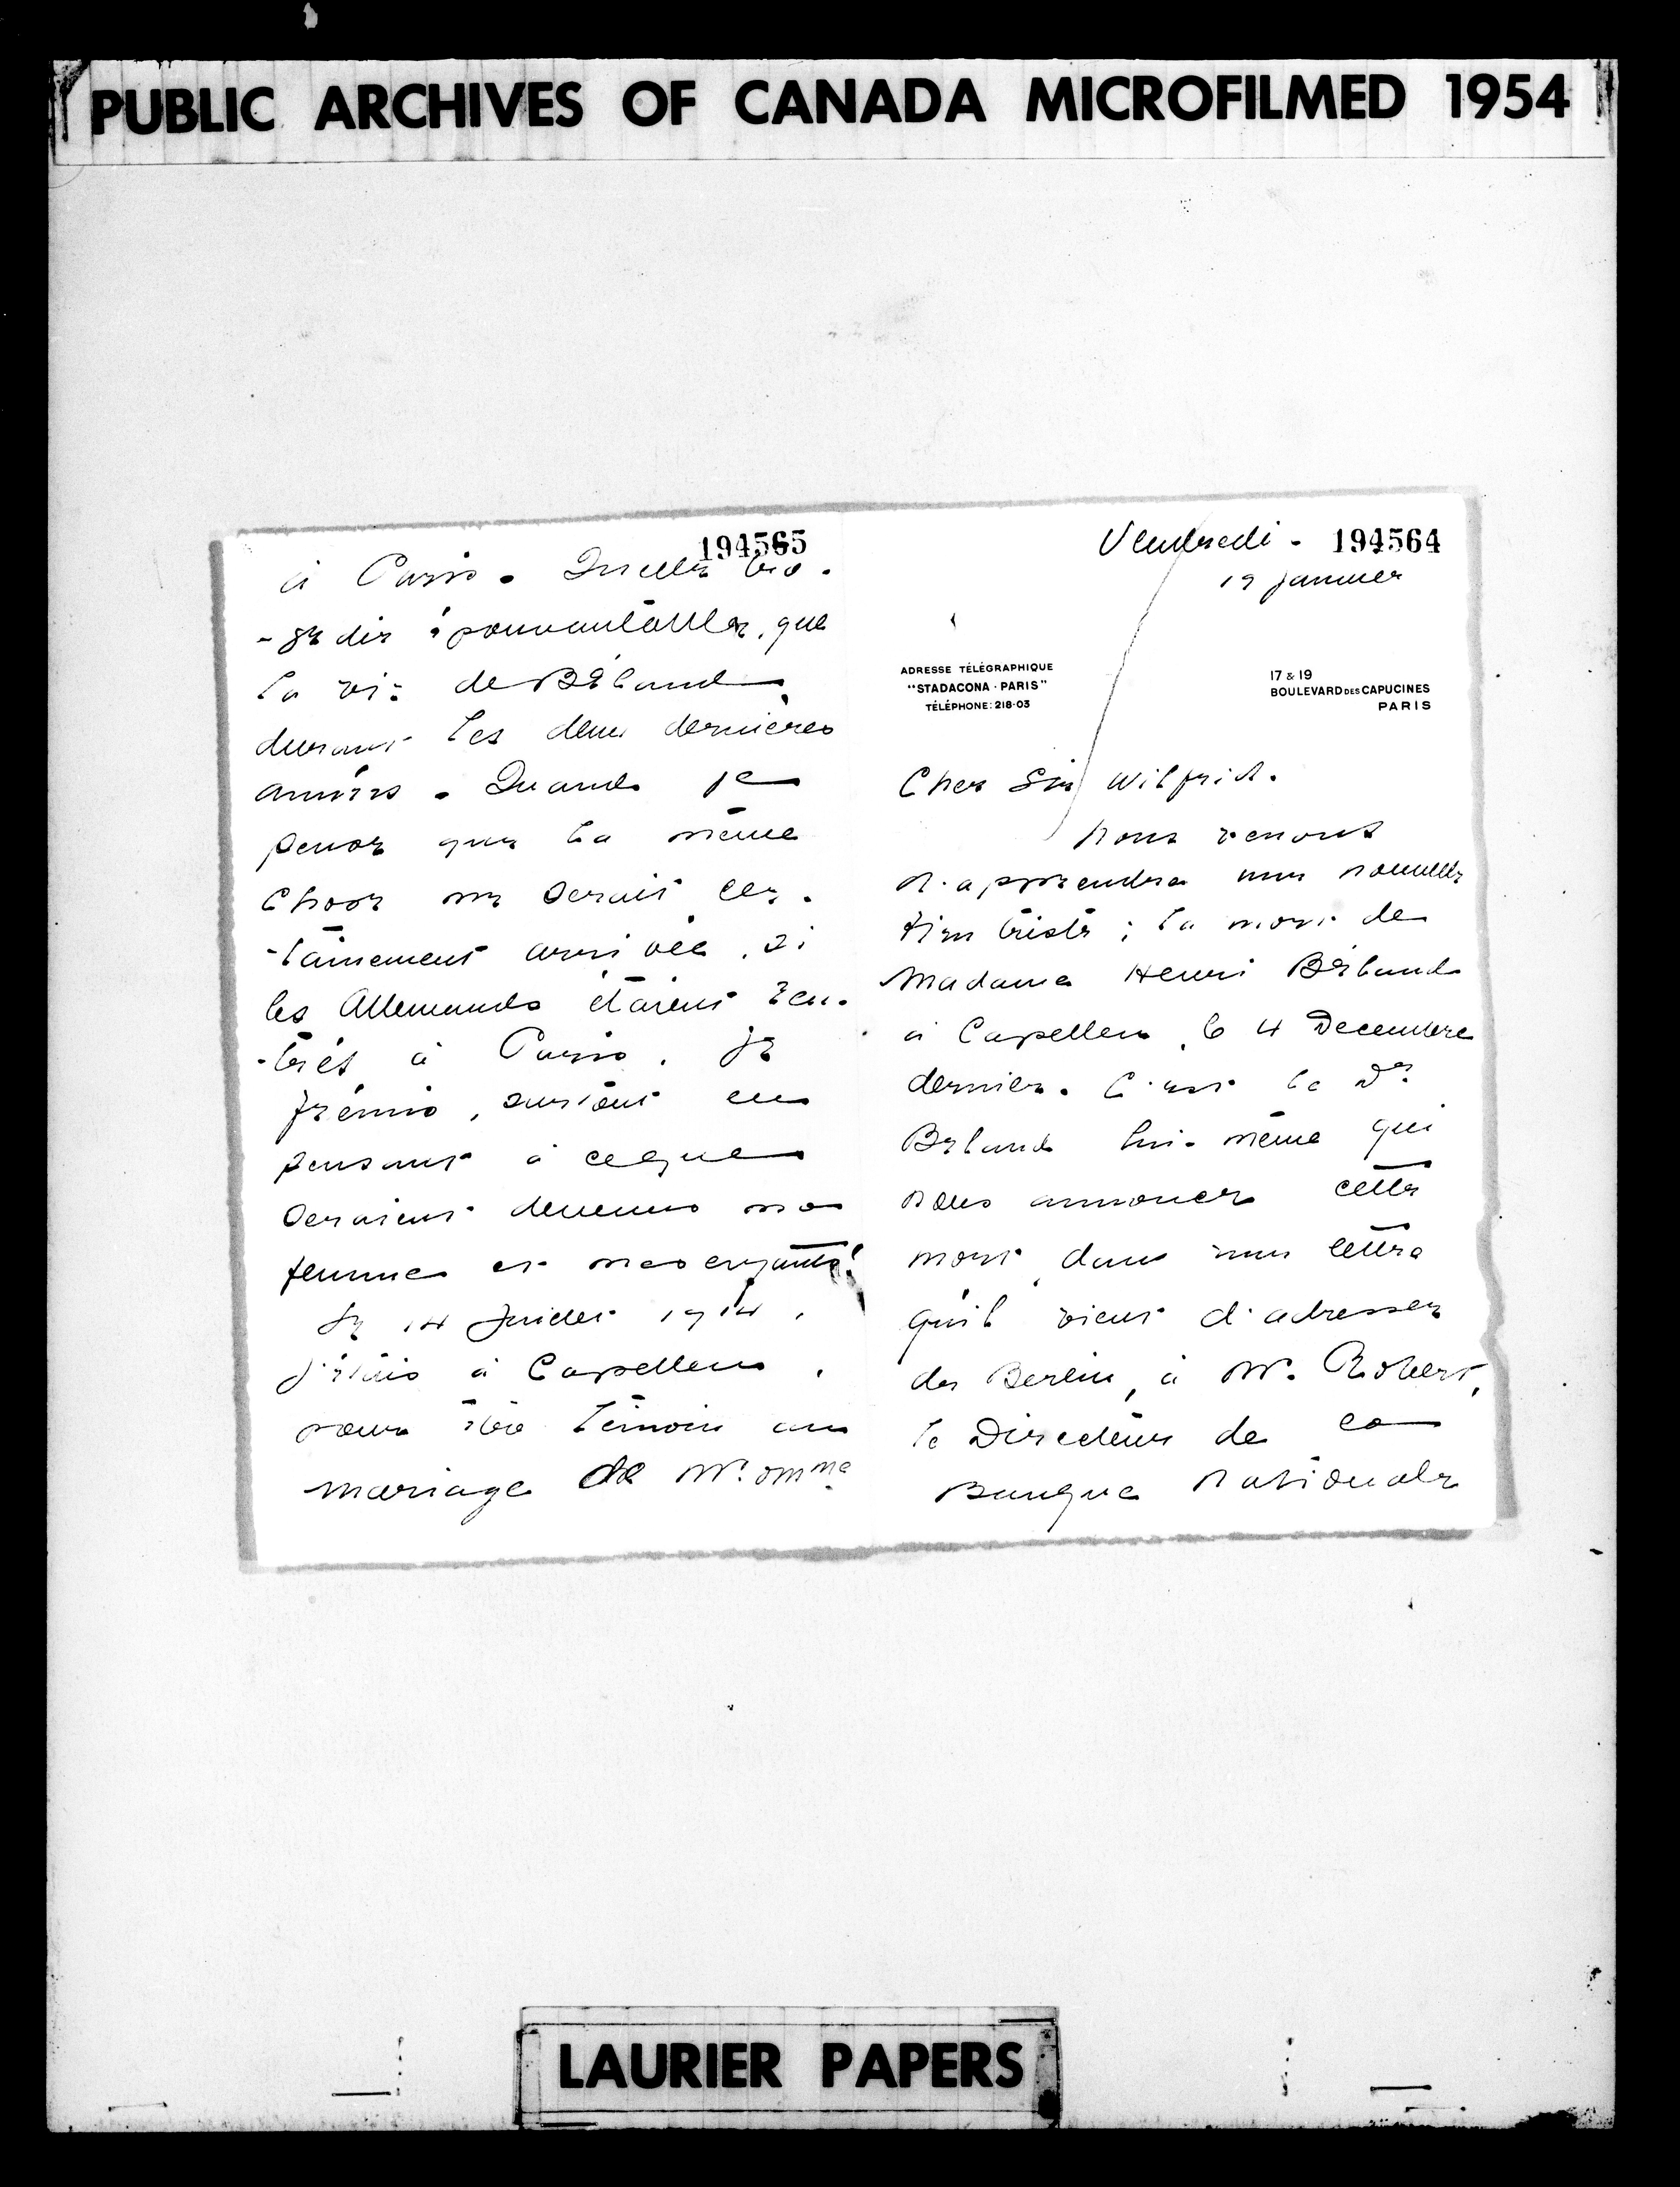 PUBLIC ARCHIVES OF CANADA MICROFILMED 1954
194564
Vendredi -
19 janvier
ADRESSE TÉLÉGRAPHIQUE
"STADACONA - PARIS"
TÉLÉPHONE: 218-03
17 & 19
BOULEVARD DES CAPUCINES
PARIS
Cher Sir Wilfrid.
Nous venons
d'apprendre une nouvelle
bien triste ; la mort de
Madame Henri Béland
à Capellen, le 4 Decembre
dernier. C'est le Dr
Béland lui-même qui
nous annonce cette
mort, dans une lettre
qu'il vient d'adresser
de Berlin, à Mr. Robert,
le Directeur de la
Banque Nationale
194565
à Paris. Quelle tra-
-gédie épouvantable, que
la vie de Béland,
durant les deux dernières
années. Quand je
pense que la même
chose me serait cer-
-tainement arrivée, si
les Allemands étaient ren-
-trés à Paris. Je
frémis, surtout en
pensant à ce que
seraient devenus ma
femme et mes enfants!
Le 14 Juillet 1914,
j'étais à Capellen,
pour être témoin au
mariage de Mr. & Mme
LAURIER PAPERS